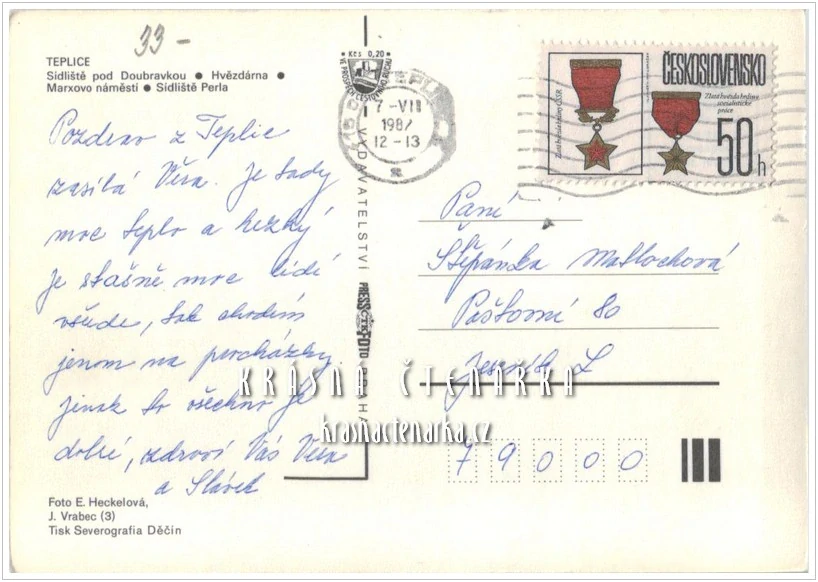 33 -
TEPLICE
Sídliště pod Doubravkou ● Hvězdárna ●
Marxovo náměstí ● Sídliště Perla
Pozdrav z Teplic
zasílá Věra. Je tady
moc teplo a hezký
je stašně moc lidí
všude, tak chodím
jenom na procházky.
Jinak to všechno je
dobré, zdraví Vás Věra
a Slávek
Foto E. Heckelová,
J. Vrabec (3)
Tisk Severografia Děčín
Kčs 0,20
VE PROSPĚCH CESTOVNÍHO RUCHU
VYDAVATELSTVÍ PRESSFOTO PRAHA
ČTK
TEPLI
7-VII
1987
12-13
Zlatá hvězda hrdiny ČSSR
ČESKOSLOVENSKO
Zlatá hvězda hrdiny
socialistické
práce
50h
Paní
Štěpánka Matlochová
Poštovní 80
Jeseník I.
79000
KRÁSNÁ ČTENÁŘKA
krasnactenarka.cz